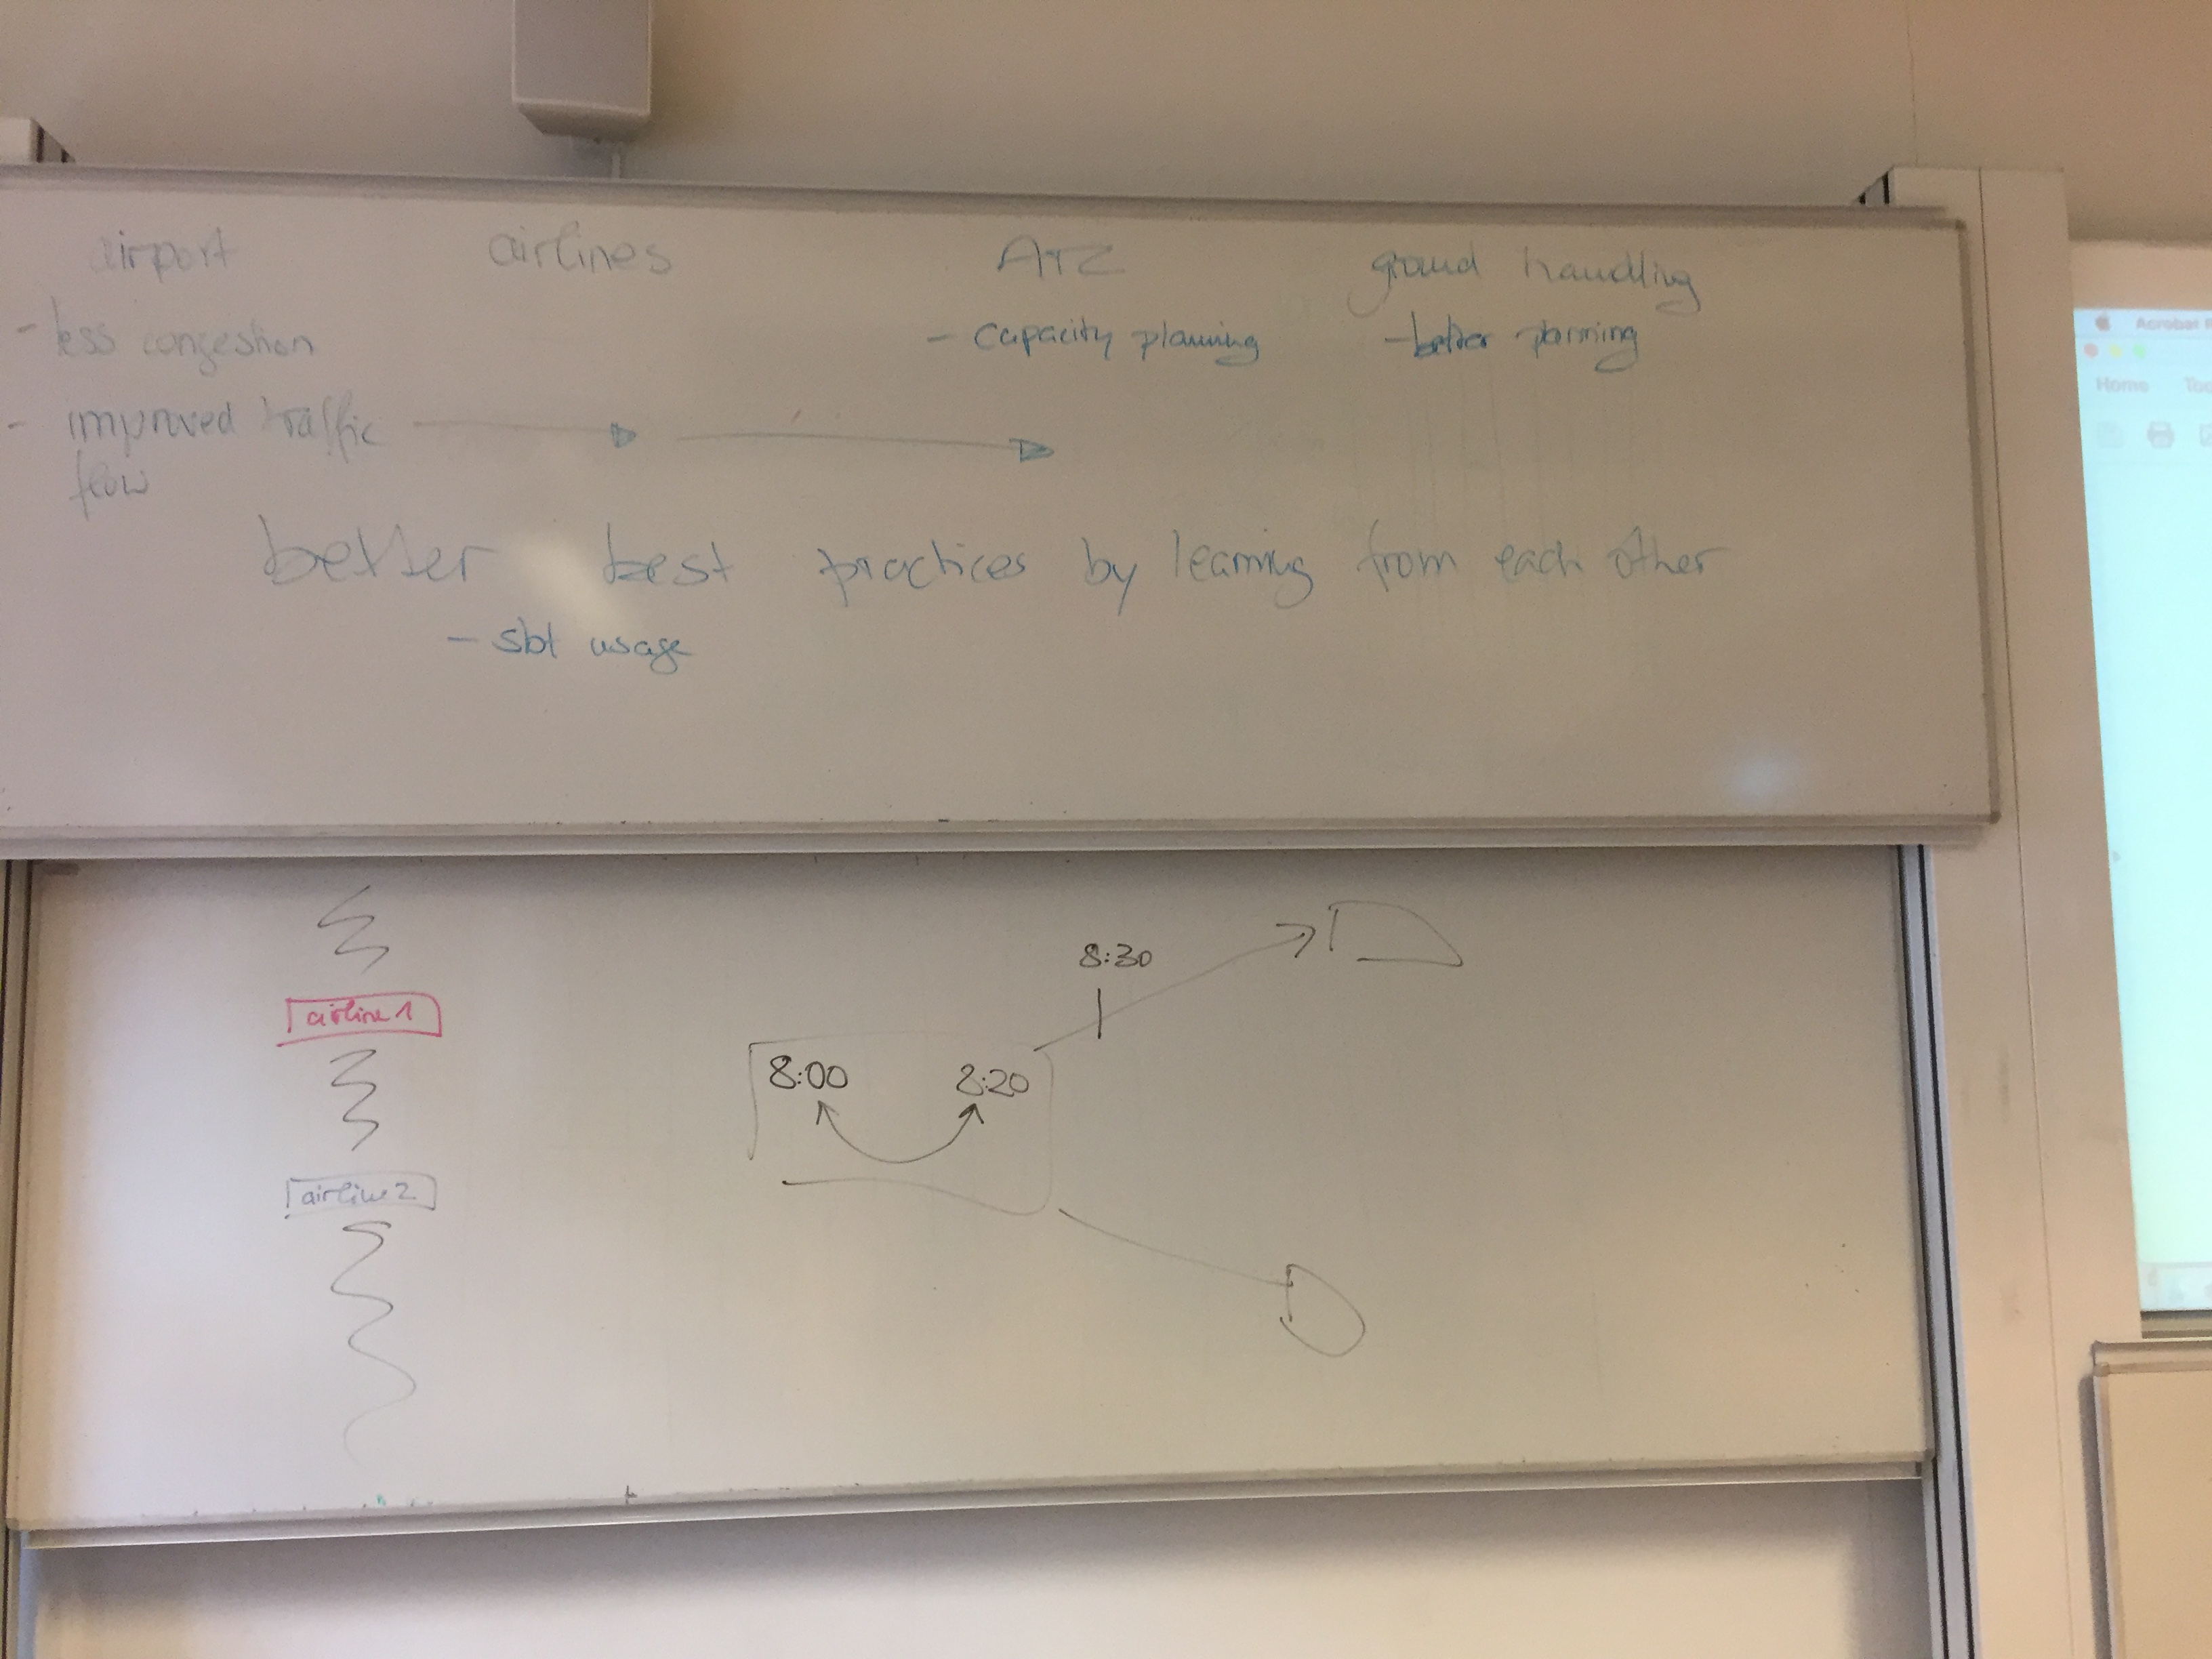 airport airlines ATC ground handling
- less congestion - capacity planning - better planning
- improved traffic
flow
better best practices by learning from each other
- sbt usage
8:30
airline 1
8:00 8:20
airline 2
Acrobat
Home